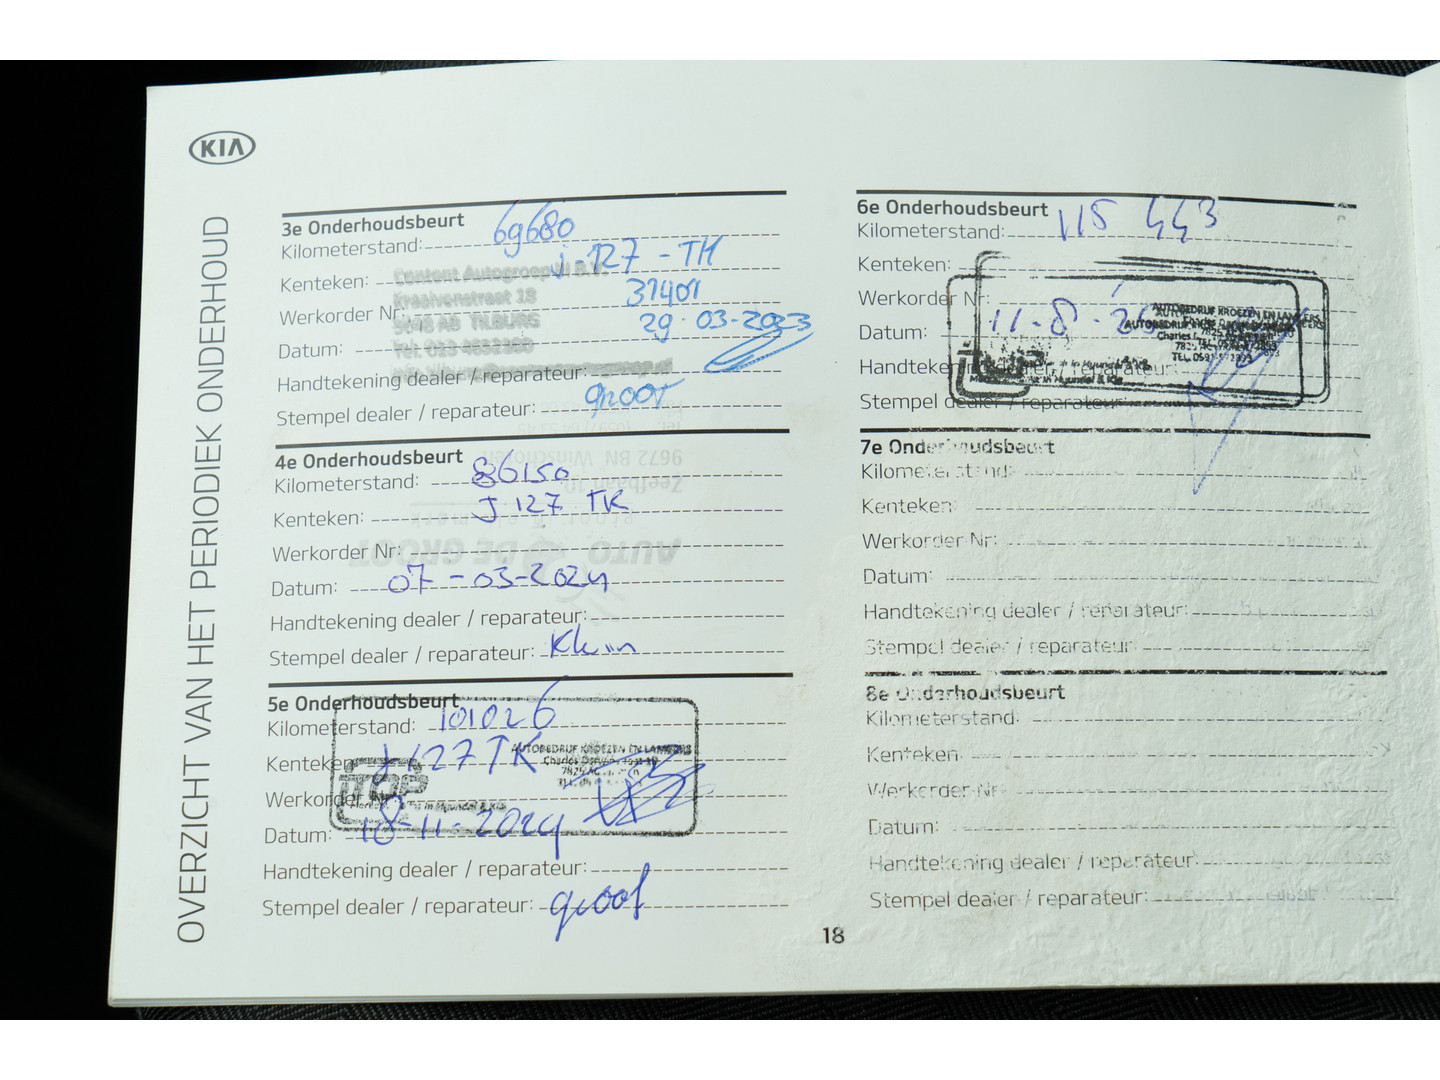 KIA
OVERZICHT VAN HET PERIODIEK ONDERHOUD
3e Onderhoudsbeurt
Kilometerstand: 69680
Kenteken: J-127-TH
Content Autogroep
Kraaivenstraat 18
Werkorder Nr: 31401
5048 AB TILBURG
Datum: 29-03-2023
Tel. 013 4632380
Handtekening dealer / reparateur:
Stempel dealer / reparateur: groot
4e Onderhoudsbeurt
Kilometerstand: 86150
Kenteken: J 127 TK
Werkorder Nr:
Datum: 07-03-2024
Handtekening dealer / reparateur:
Stempel dealer / reparateur: Klein
9672 BN Winschoten
Zeefbaan 10
AUTO DE GROOT
5e Onderhoudsbeurt
Kilometerstand: 101026
Kenteken: J 127 TK
AUTOBEDRIJF KROEZEN EN LAMMERS
Werkorder Nr:
Datum: 18-11-2024
Handtekening dealer / reparateur:
Stempel dealer / reparateur: groot
6e Onderhoudsbeurt
Kilometerstand: 115 443
Kenteken:
Werkorder Nr:
AUTOBEDRIJF KROEZEN EN LAMMERS
Datum: 11-8-
Handtekening dealer / reparateur:
Stempel dealer / reparateur:
7e Onderhoudsbeurt
Kilometerstand:
Kenteken:
Werkorder Nr:
Datum:
Handtekening dealer / reparateur:
Stempel dealer / reparateur:
8e Onderhoudsbeurt
Kilometerstand:
Kenteken:
Werkorder Nr:
Datum:
Handtekening dealer / reparateur:
Stempel dealer / reparateur:
18